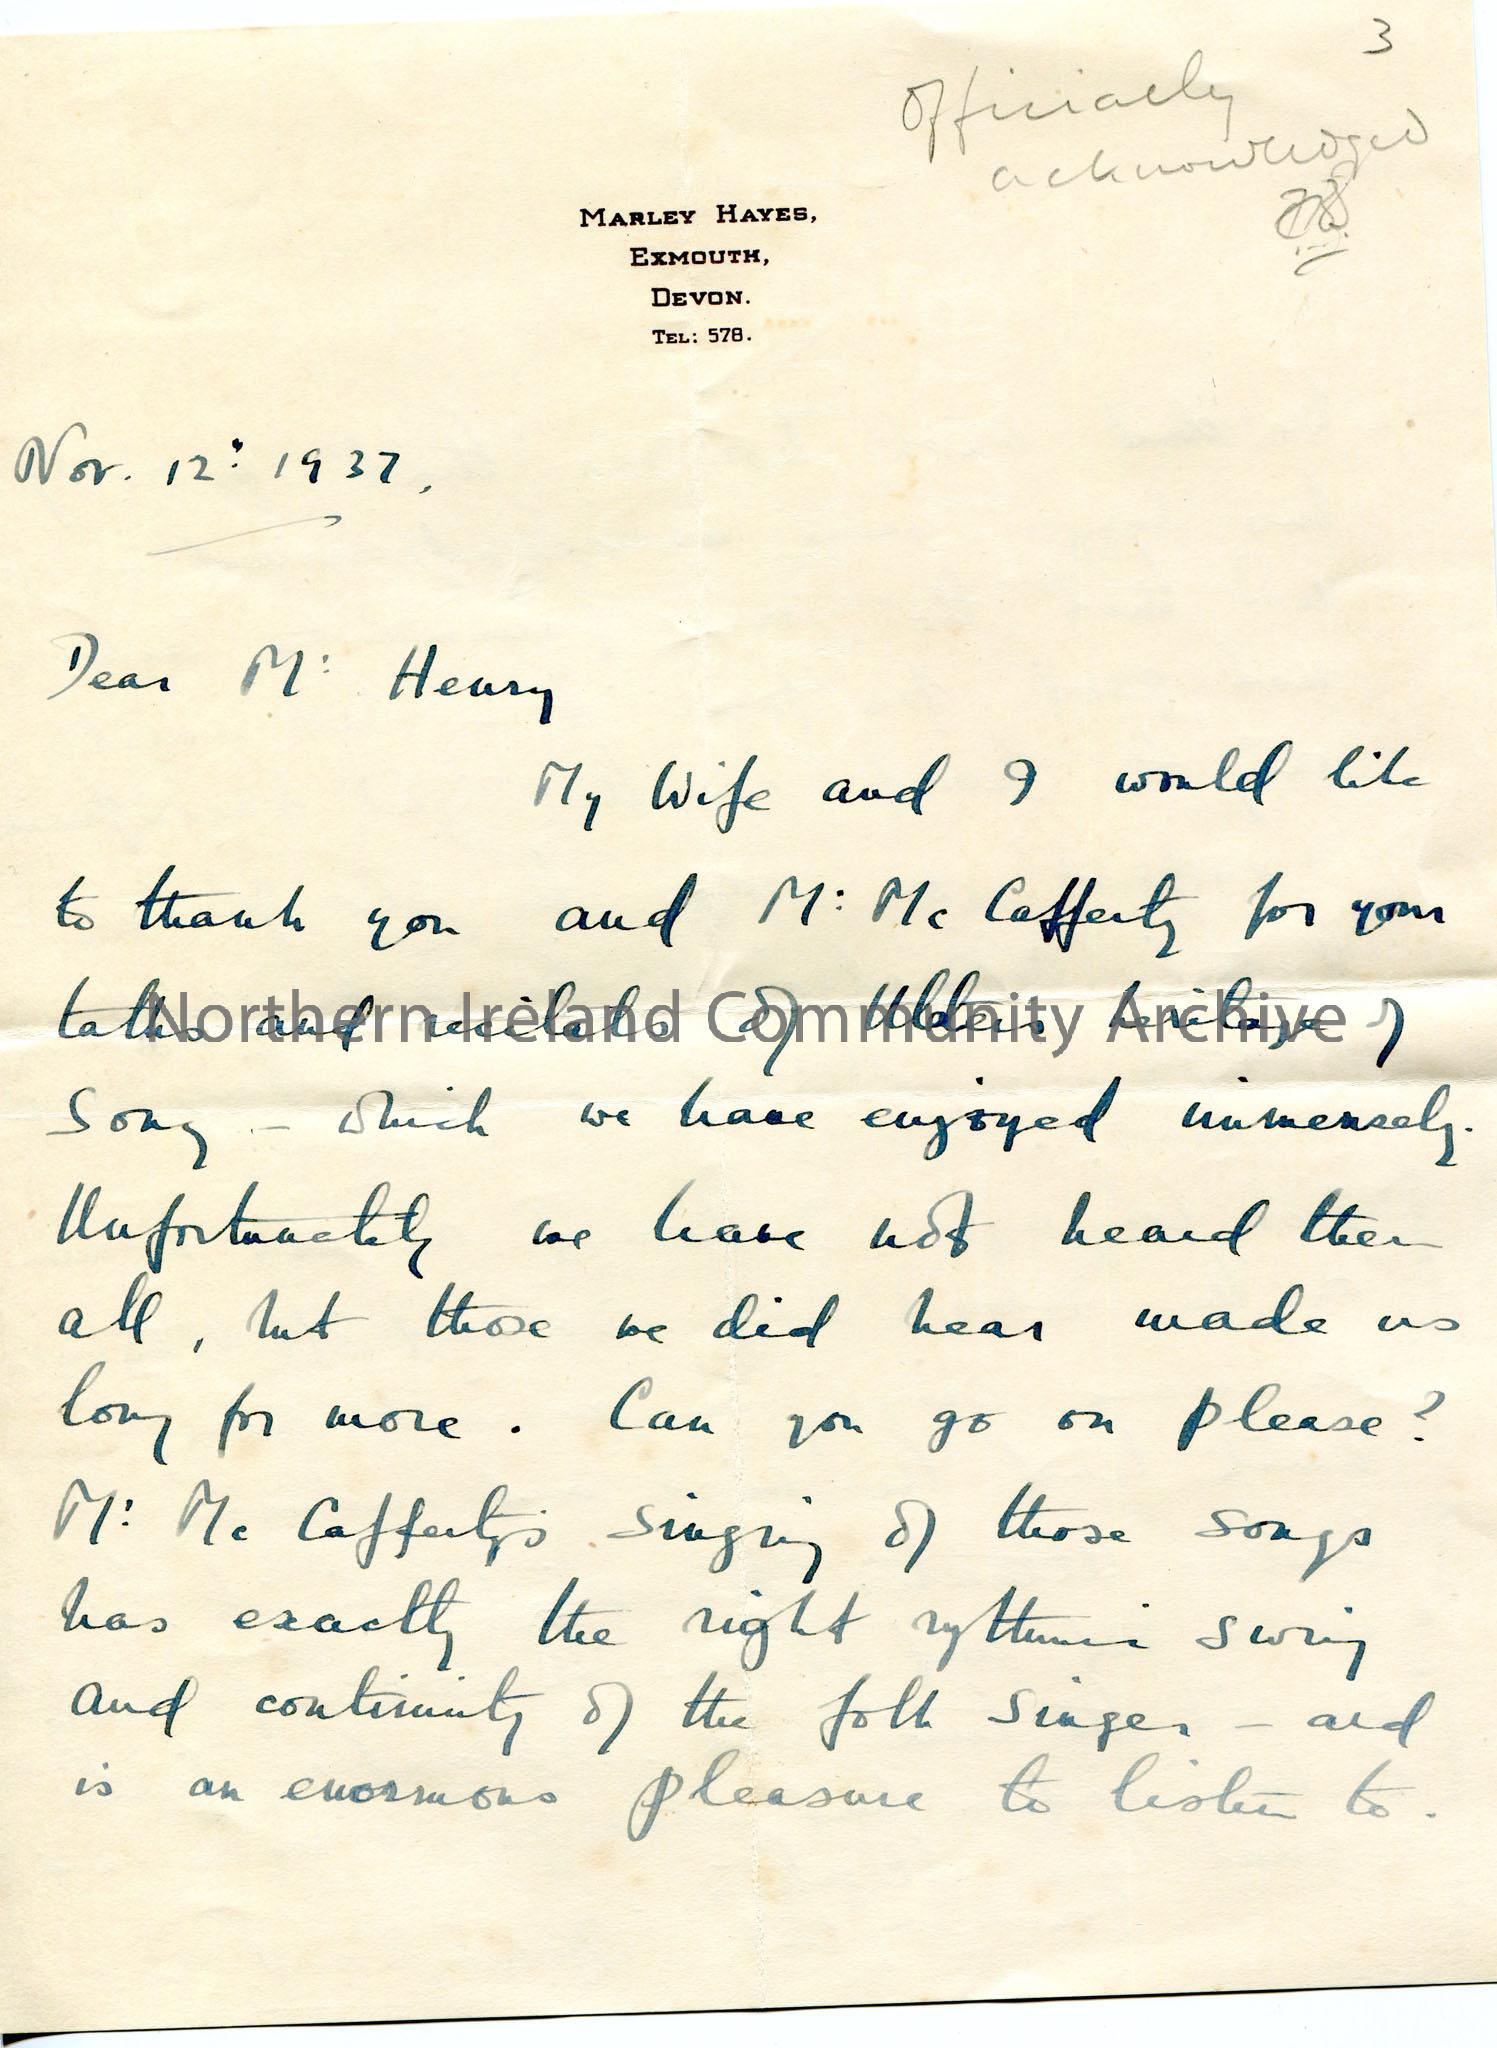 3
Officially
acknowledged
MARLEY HAYES,
EXMOUTH,
DEVON.
TEL: 578.
Nov. 12: 1937.
Dear Mr: Henry
My Wife and I would like
to thank you and Mr: Mc Cafferty for your
talks and recitals of Ulster's heritage of
Song – which we have enjoyed immensely.
Northern Ireland Community Archive
Unfortunately we have not heard them
all, but those we did hear made us
long for more. Can you go on please?
Mr: Mc Cafferty's singing of those songs
has exactly the right rythmic swing
and continuity of the folk singer – and
is an enormous pleasure to listen to.